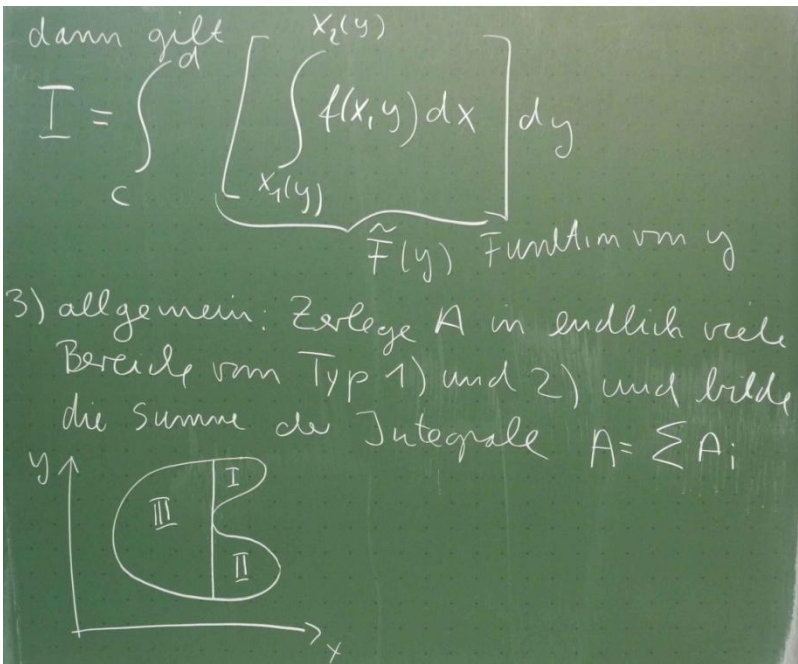 dann gilt
I = ∫_c^d [ ∫_{x₁(y)}^{x₂(y)} f(x,y) dx ] dy
F̃(y) Funktion von y
3) allgemein: Zerlege A in endlich viele
Bereiche vom Typ 1) und 2) und bilde
die Summe der Integrale A = Σ Ai
y
I
III
II
x